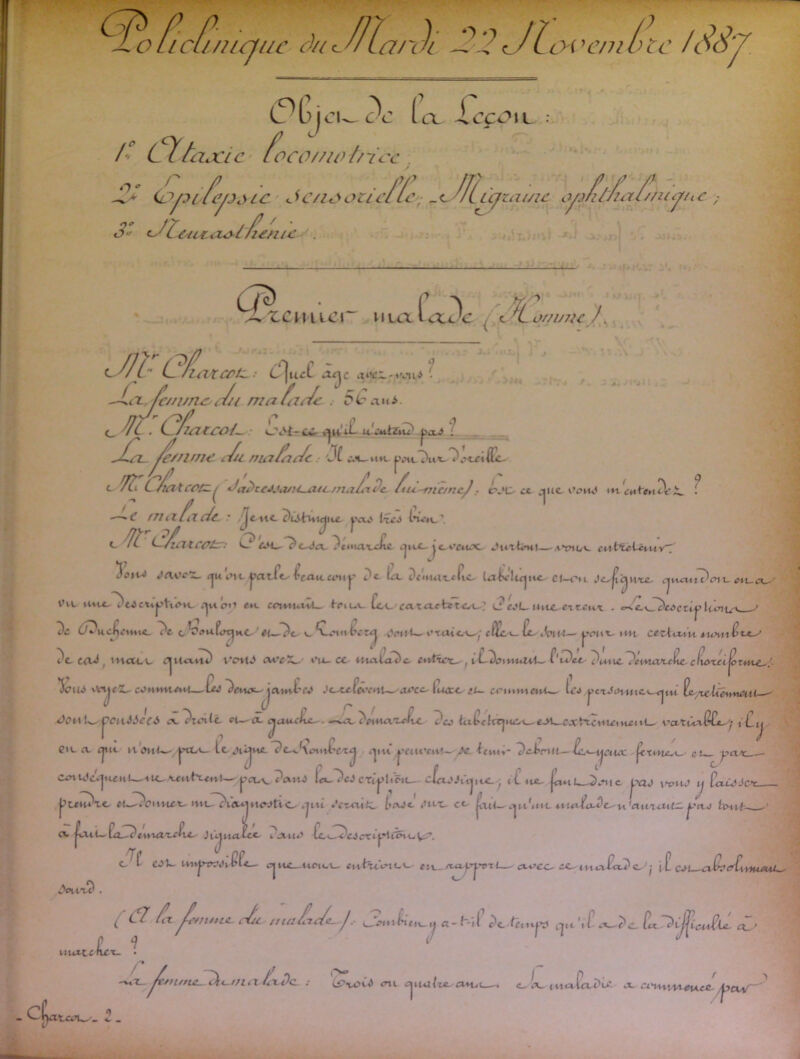 Policlinique du Mardi 22 Novembre 1887
Objet de la Leçon :
1º Ataxie locomotrice ;
2º Epilepsie sensorielle ; Migraine ophthalmique ;
3º Neurasthénie .
Premier malade (Homme).
Mr Charcot : Quel âge avez-vous ?
La femme du malade : 56 ans.
M. Charcot : Est-ce qu'il n'entend pas ?
La femme du malade : Il est un peu dur d'oreille.
M. Charcot (s'adressant au malade lui-même) : Est-ce que vous m'entendez ?
Le malade : Je ne distingue pas très bien.
Mr Charcot : C'est de sa démarche que je veux surtout vous entretenir.
Vous savez qu'on parle beaucoup de la démarche tabétique et on se figure, quand on en a
vu une description, qu'on en connait tous les caractères ? C'est une erreur. Les descriptions
de Duchenne, de Trousseau et de Romberg sont vraies, elles le sont pour un certain nombre
de cas, mais quand vous avez vu ce malade entrer, il donnait l'idée d'une démarche choréiforme.
Vous voyez comment les deux jambes se relèvent avec luxe et comment les personnes qui le retiennent
sont poussées à droite et à gauche. La démarche des tabétiques est extrêmement variable ; il y
en a qui n'ont pas le signe de Romberg, qui peuvent se tenir debout les yeux fermés et, par
conséquent, ne rentrent pas dans la description classique ; il ne faut donc pas vous y laisser
prendre et donner un diagnostic qui serait basé sur ce fait qu'un malade n'aurait pas tout
à fait la démarche signalée dans les descriptions.
Il est impossible que nous entrions en rapport avec ce malade ; il est absolument
sourd .
(A la femme du malade) : Combien y a-t-il de temps qu'il a de la difficulté à
marcher ?
La femme du malade : Trois ou quatre ans. La maladie a commencé par
- Charcot. 2 -